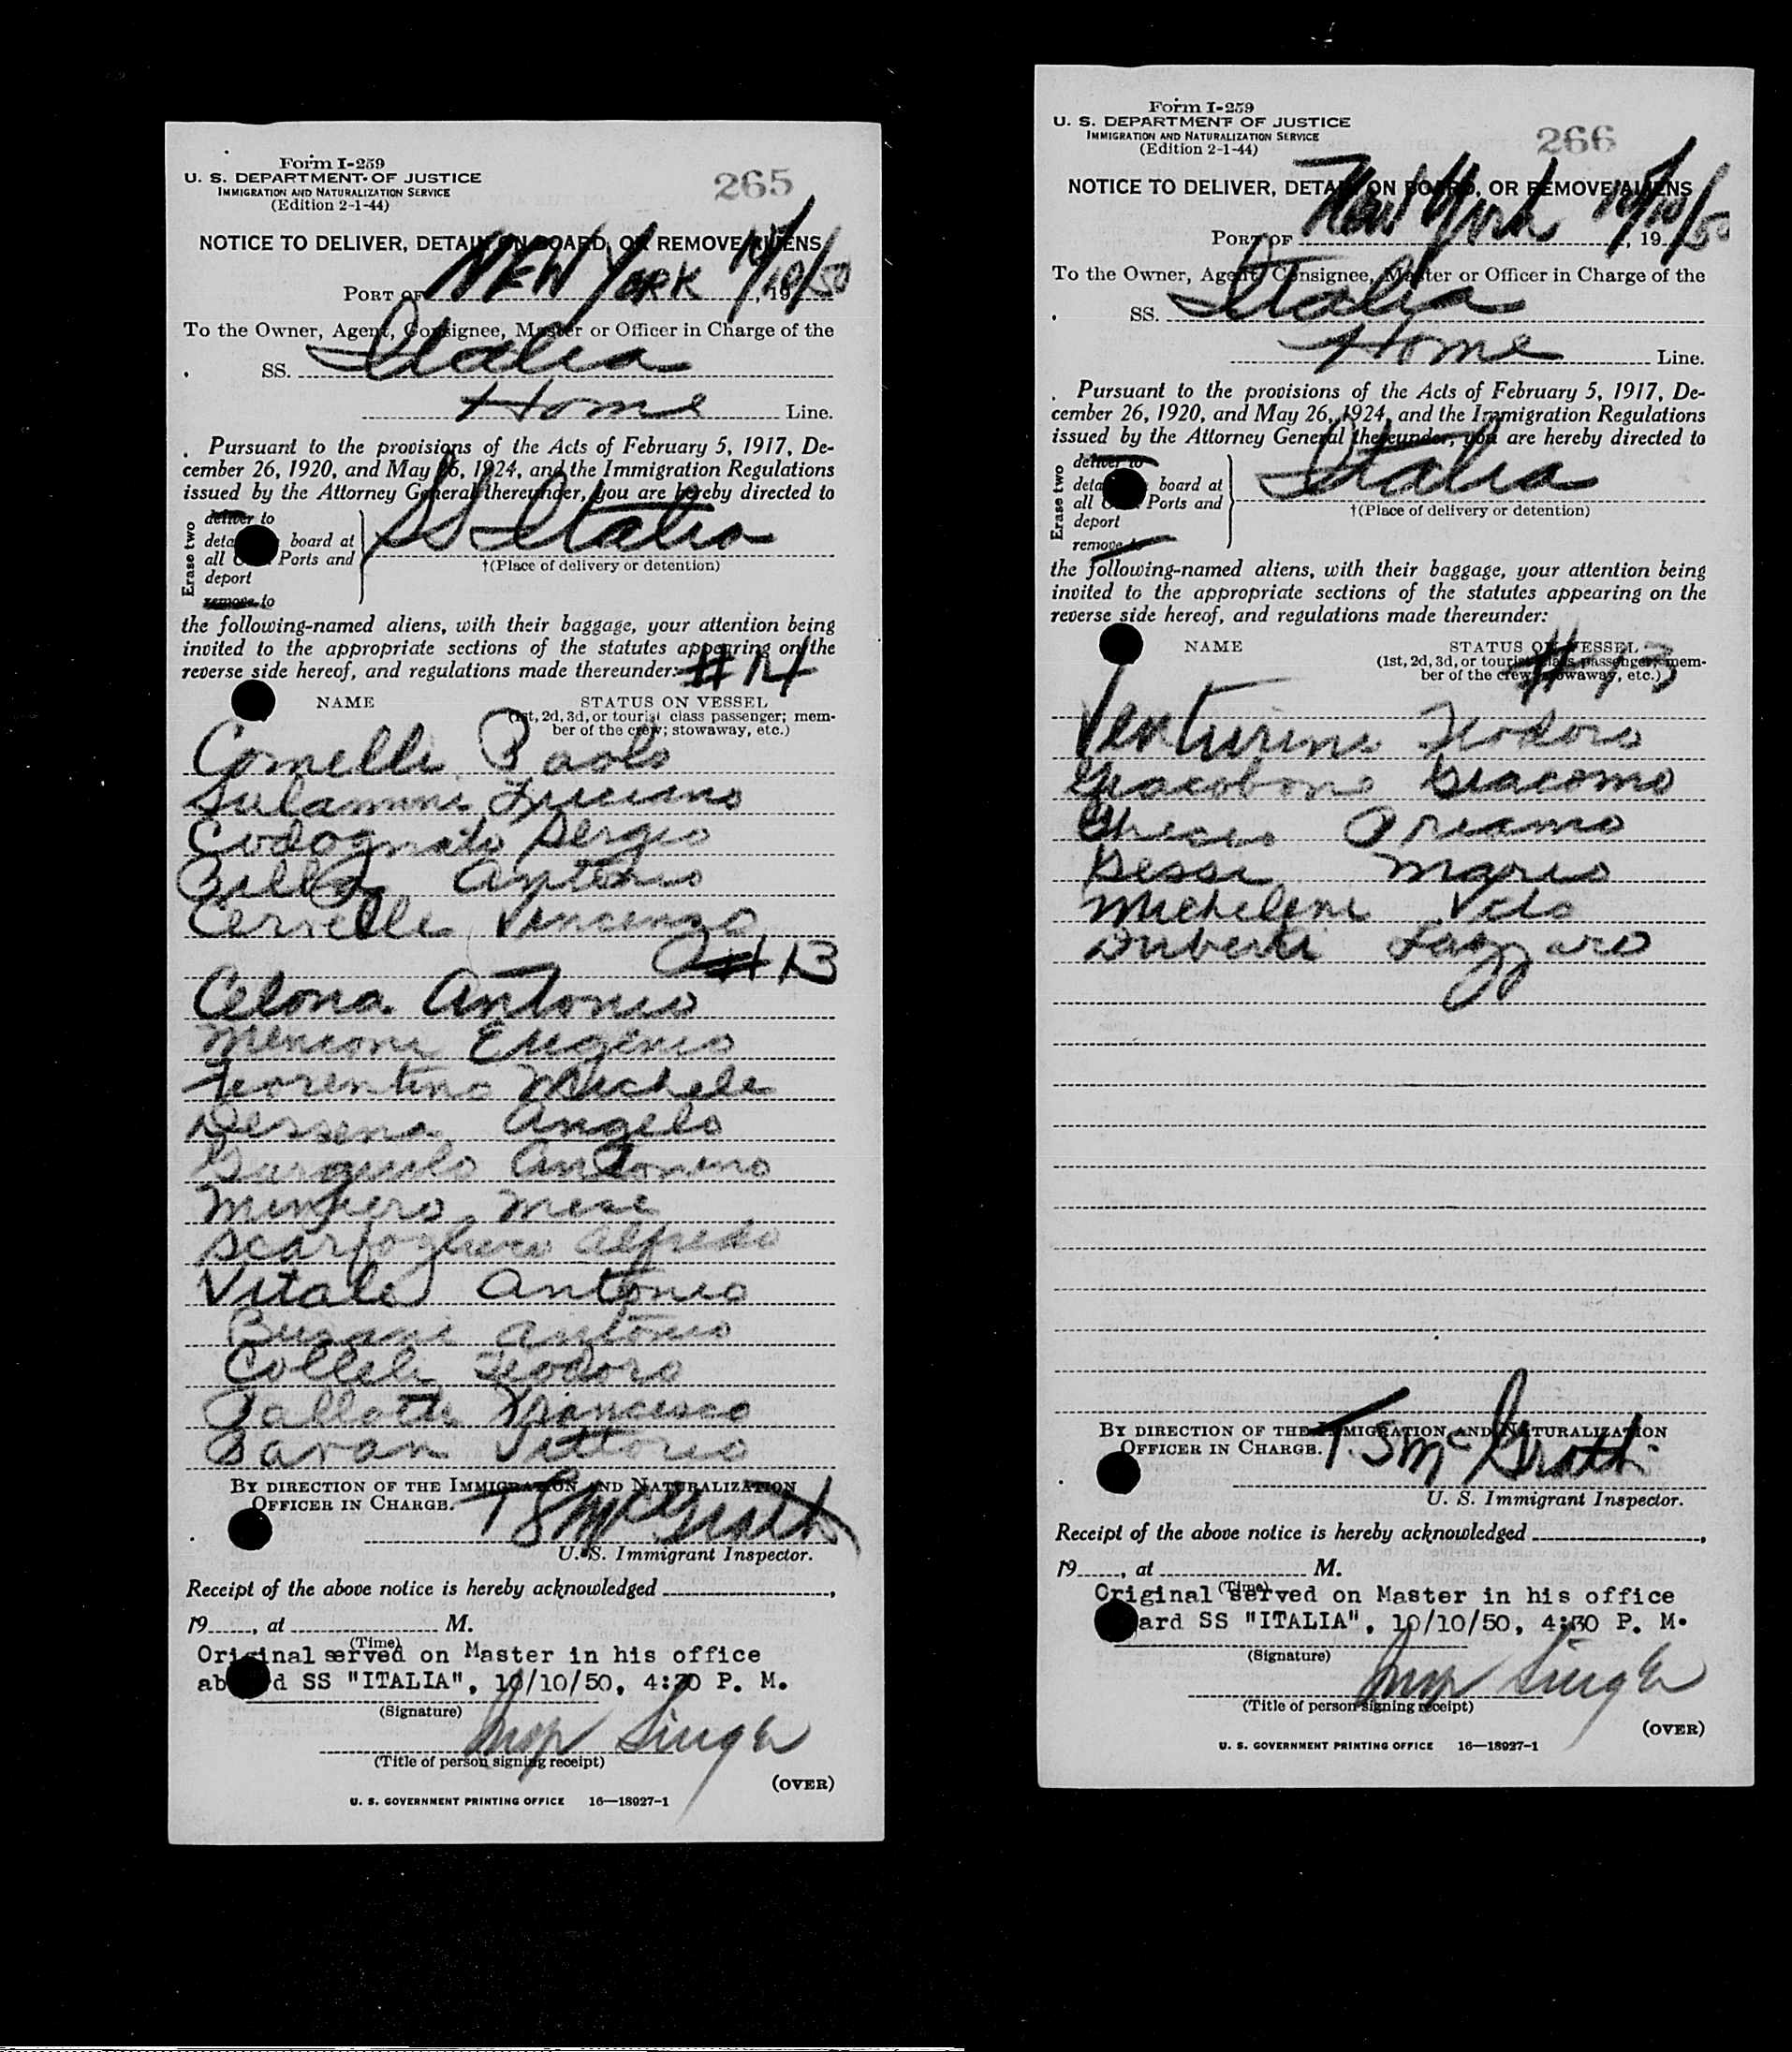 Form I-259
U. S. DEPARTMENT OF JUSTICE
IMMIGRATION AND NATURALIZATION SERVICE
(Edition 2-1-44)
265
NOTICE TO DELIVER, DETAIN ON BOARD, OR REMOVE ALIENS
PORT OF NEW YORK 10/10/50, 19
To the Owner, Agent, Consignee, Master or Officer in Charge of the
SS. Italia
Home Line.
Pursuant to the provisions of the Acts of February 5, 1917, De-
cember 26, 1920, and May 26, 1924, and the Immigration Regulations
issued by the Attorney General thereunder, you are hereby directed to
Erase two
deliver to
detain on board at
all U.S. Ports and
deport
remove to
SS Italia
†(Place of delivery or detention)
the following-named aliens, with their baggage, your attention being
invited to the appropriate sections of the statutes appearing on the
reverse side hereof, and regulations made thereunder:
# 14
NAME STATUS ON VESSEL
(1st, 2d, 3d, or tourist class passenger; mem-
ber of the crew; stowaway, etc.)
Comelli Paolo
Sulamini Luciano
Codognato Sergio
Billa Antonio
Cervelli Vincenzo
# 13
Celona Antonio
Mencone Eugenio
Fiorentino Michele
Dessena Angelo
Gargiulo Antonino
Miniero
Scarfogliero Alfredo
Vitale Antonio
Antonio
Colleli Teodoro
Pallotti Francesco
Savan Vittorio
BY DIRECTION OF THE IMMIGRATION AND NATURALIZATION
OFFICER IN CHARGE.
T S McGrath
U. S. Immigrant Inspector.
Receipt of the above notice is hereby acknowledged ,
19 , at M.
(Time)
Original served on Master in his office
aboard SS "ITALIA", 10/10/50, 4:30 P. M.
(Signature)
Insp Singer
(Title of person signing receipt)
(OVER)
U. S. GOVERNMENT PRINTING OFFICE 16—18927-1
Form I-259
U. S. DEPARTMENT OF JUSTICE
IMMIGRATION AND NATURALIZATION SERVICE
(Edition 2-1-44)
266
NOTICE TO DELIVER, DETAIN ON BOARD, OR REMOVE ALIENS
PORT OF New York 10/10/50, 19
To the Owner, Agent, Consignee, Master or Officer in Charge of the
SS. Italia
Home Line.
Pursuant to the provisions of the Acts of February 5, 1917, De-
cember 26, 1920, and May 26, 1924, and the Immigration Regulations
issued by the Attorney General thereunder, you are hereby directed to
Erase two
deliver to
detain on board at
all U.S. Ports and
deport
remove to
Italia
†(Place of delivery or detention)
the following-named aliens, with their baggage, your attention being
invited to the appropriate sections of the statutes appearing on the
reverse side hereof, and regulations made thereunder:
NAME STATUS ON VESSEL
(1st, 2d, 3d, or tourist class passenger; mem-
ber of the crew; stowaway, etc.)
# 13
Venturini Teodoro
Giacobone Giacomo
Priamo
Dessi Mario
Michelini Vito
Duberti Lazzaro
BY DIRECTION OF THE IMMIGRATION AND NATURALIZATION
OFFICER IN CHARGE.
T. S McGrath
U. S. Immigrant Inspector.
Receipt of the above notice is hereby acknowledged ,
19 , at M.
(Time)
Original served on Master in his office
aboard SS "ITALIA", 10/10/50, 4:30 P. M.
(Signature)
Insp Singer
(Title of person signing receipt)
(OVER)
U. S. GOVERNMENT PRINTING OFFICE 16—18927-1